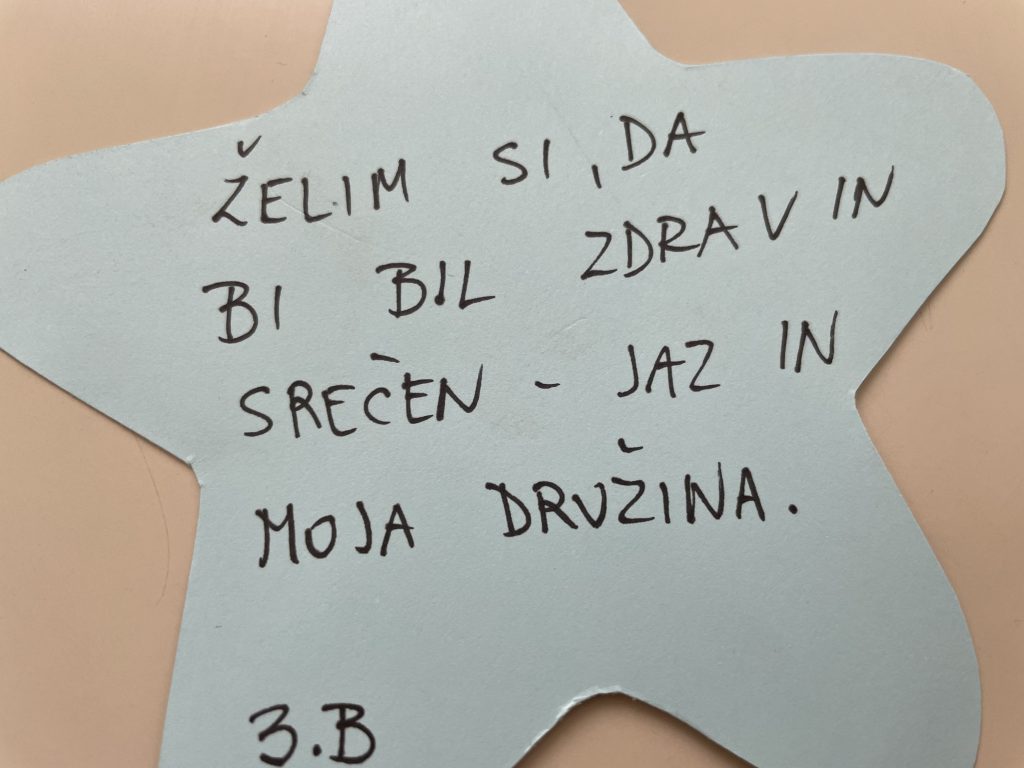 ŽELIM SI, DA
BI BIL ZDRAV IN
SREČEN - JAZ IN
MOJA DRUŽINA.
3.B